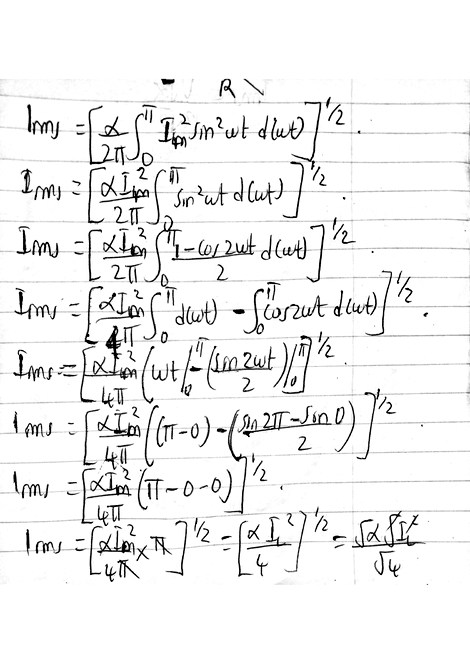 R
Irms = [α/2π ∫₀^π Im² sin²ωt d(ωt)]^1/2.
Irms = [αIm²/2π ∫₀^π sin²ωt d(ωt)]^1/2.
Irms = [αIm²/2π ∫₀^π 1-cos2ωt/2 d(ωt)]^1/2
Irms = [αIm²/4π ∫₀^π d(ωt) - ∫₀^π cos2ωt d(ωt)]^1/2.
Irms = [αIm²/4π (ωt/₀^π - (sin2ωt/2)/₀^π]^1/2.
Irms = [αIm²/4π ((π-0) - (sin2π-sin0/2)]^1/2
Irms = [αIm²/4π (π-0-0)]^1/2.
Irms = [αIm²/4π × π]^1/2 = [αI²/4]^1/2 = √α √I²/√4